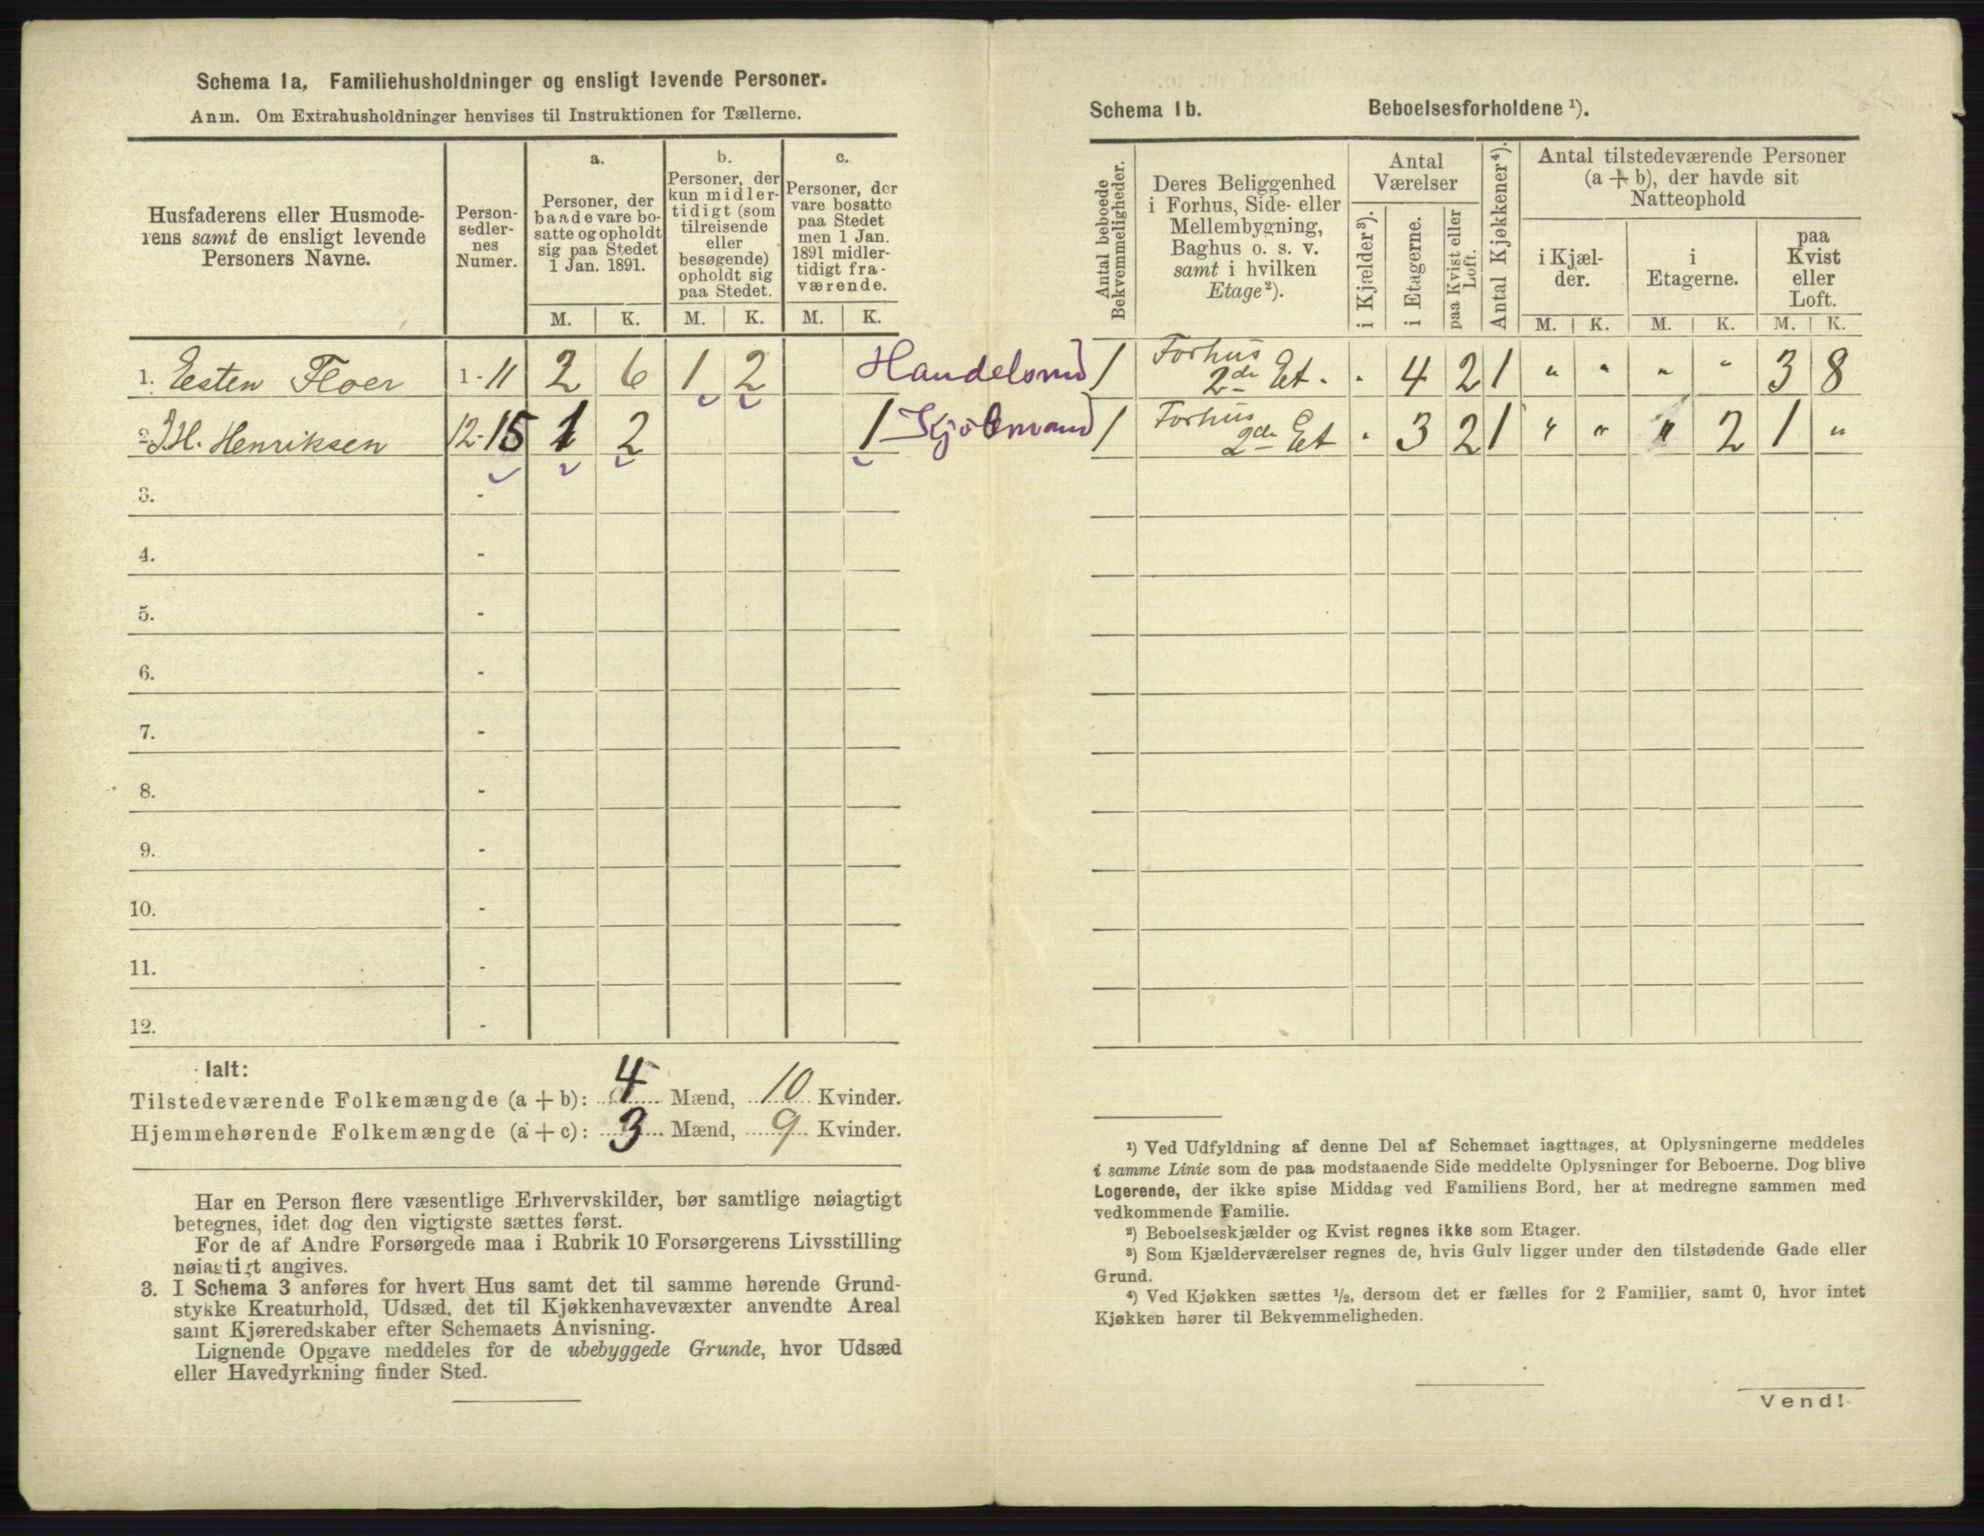 Schema 1a, Familiehusholdninger og ensligt levende Personer.
Anm. Om Extrahusholdninger henvises til Instruktionen for Tællerne.
Husfaderens eller Husmode-
rens samt de ensligt levende
Personers Navne.
Person-
sedler-
nes
Numer.
a.
Personer, der
baade vare bo-
satte og opholdt
sig paa Stedet
1 Jan. 1891.
b.
Personer, der
kun midler-
tidigt (som
tilreisende
eller
besøgende)
opholdt sig
paa Stedet.
c.
Personer, der
vare bosatte
paa Stedet
men 1 Jan.
1891 midler-
tidigt fra-
værende.
M. K. M. K. M. K.
1. Eesten Floer 1 - 11 2 6 1 2 Handelsmd
2. J.H. Henriksen 12 - 15 1 2 1 Kjøbmand
3. -
4. -
5. -
6. -
7. -
8. -
9. -
10. -
11. -
12. -
Ialt:
Tilstedeværende Folkemængde (a + b): 4 Mænd, 10 Kvinder.
Hjemmehørende Folkemængde (a + c): 3 Mænd, 9 Kvinder.
Har en Person flere væsentlige Erhvervskilder, bør samtlige nøiagtigt
betegnes, idet dog den vigtigste sættes først.
For de af Andre Forsørgede maa i Rubrik 10 Forsørgerens Livsstilling
nøiagtigt angives.
3. I Schema 3 anføres for hvert Hus samt det til samme hørende Grund-
stykke Kreaturhold, Udsæd, det til Kjøkkenhavevæxter anvendte Areal
samt Kjøreredskaber efter Schemaets Anvisning.
Lignende Opgave meddeles for de ubebyggede Grunde, hvor Udsæd
eller Havedyrkning finder Sted.
Schema 1b. Beboelsesforholdene ¹).
Antal beboede
Bekvemmeligheder.
Deres Beliggenhed
i Forhus, Side- eller
Mellembygning,
Baghus o. s. v.
samt i hvilken
Etage²).
Antal
Værelser
i Kjælder³).
i Etagerne.
paa Kvist eller
Loft.
Antal Kjøkkener⁴).
Antal tilstedeværende Personer
(a + b), der havde sit
Natteophold
i Kjæl-
der.
i
Etagerne.
paa
Kvist
eller
Loft.
M. K. M. K. M. K.
1 Forhus 2de Et. " 4 2 1 " " " " 3 8
1 Forhus 2de Et " 3 2 1 " " " 2 1 "
¹) Ved Udfyldning af denne Del af Schemaet iagttages, at Oplysningerne meddeles
i samme Linie som de paa modstaaende Side meddelte Oplysninger for Beboerne. Dog blive
Logerende, der ikke spise Middag ved Familiens Bord, her at medregne sammen med
vedkommende Familie.
²) Beboelseskjælder og Kvist regnes ikke som Etager.
³) Som Kjælderværelser regnes de, hvis Gulv ligger under den tilstødende Gade eller
Grund.
⁴) Ved Kjøkken sættes ½, dersom det er fælles for 2 Familier, samt 0, hvor intet
Kjøkken hører til Bekvemmeligheden.
Vend!